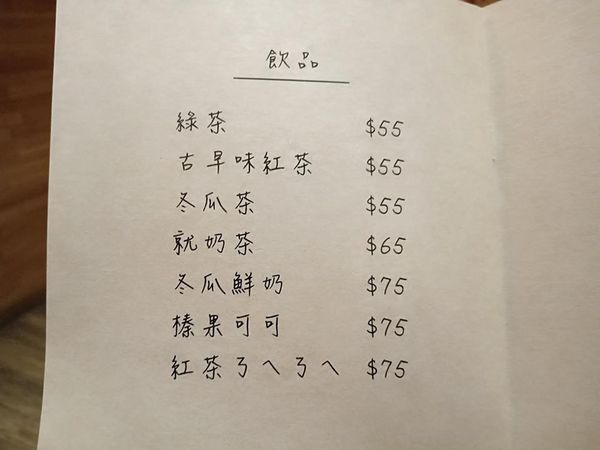 飲品
綠茶 $55
古早味紅茶 $55
冬瓜茶 $55
就奶茶 $65
冬瓜鮮奶 $75
榛果可可 $75
紅茶ㄋㄟㄋㄟ $75